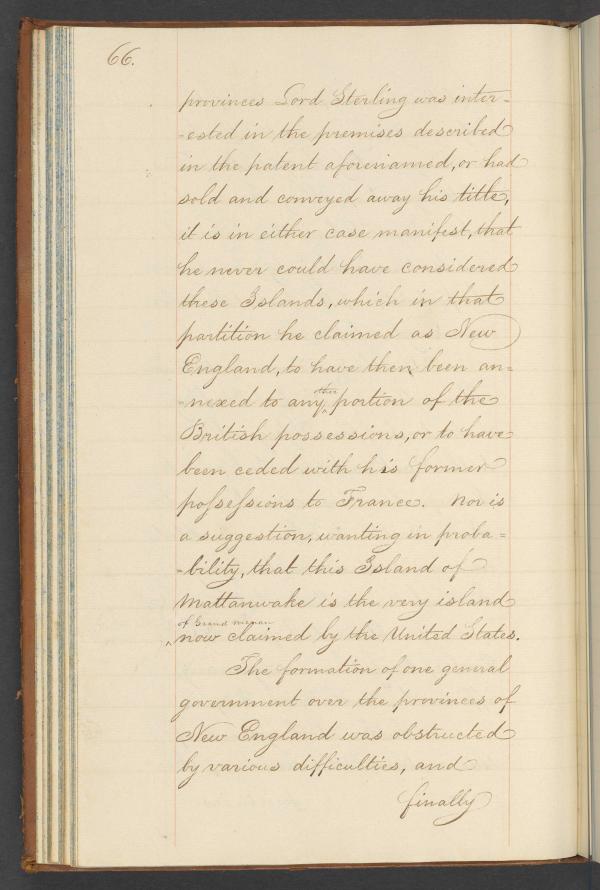 66.
provinces Lord Sterling was inter-
-ested in the premises described
in the patent aforenamed, or had
sold and conveyed away his title,
it is in either case manifest, that
he never could have considered
these Islands, which in that
partition he claimed as New
England, to have then been an=
-nexed to any other portion of the
British possessions, or to have
been ceded with his former
possessions to France. Nor is
a suggestion, wanting in proba=
-bility, that this Island of
Mattanwake is the very island
of Grand Menan
now claimed by the United States.
The formation of one general
government over the provinces of
New England was obstructed
by various difficulties, and
finally